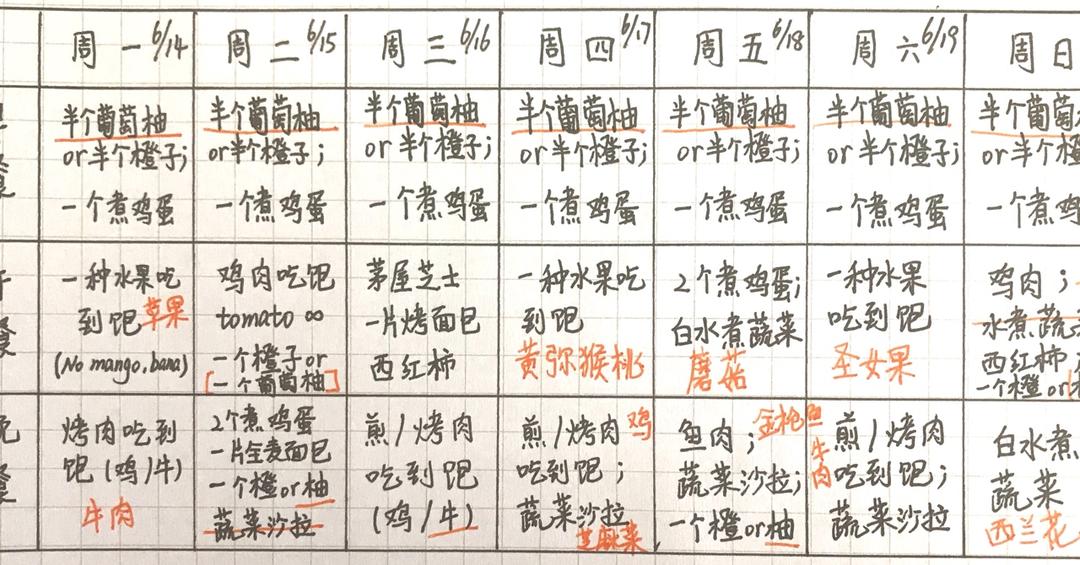 周一 6/14 周二 6/15 周三 6/16 周四 6/17 周五 6/18 周六 6/19 周日
半个葡萄柚 半个葡萄柚 半个葡萄柚 半个葡萄柚 半个葡萄柚 半个葡萄柚 半个葡萄
or半个橙子; or半个橙子; or半个橙子; or半个橙子; or半个橙子; or半个橙子; or半个橙
一个煮鸡蛋 一个煮鸡蛋 一个煮鸡蛋 一个煮鸡蛋 一个煮鸡蛋 一个煮鸡蛋 一个煮鸡
一种水果吃
到饱 苹果
(No mango, bana)
鸡肉吃饱
tomato ∞
一个橙子or
[一个葡萄柚]
茅屋芝士
一片烤面包
西红柿
一种水果吃
到饱
黄弥猴桃
2个煮鸡蛋;
白水煮蔬菜
磨菇
一种水果
吃到饱
圣女果
鸡肉;
水煮蔬
西红柿
一个橙or
烤肉吃到
饱(鸡/牛)
牛肉
2个煮鸡蛋
一片全麦面包
一个橙or柚
蔬菜沙拉
煎/烤肉
吃到饱
(鸡/牛)
煎/烤肉 鸡
吃到饱;
蔬菜沙拉
芝麻菜
鱼肉; 金枪鱼
蔬菜沙拉;
一个橙or柚
牛肉
煎/烤肉
吃到饱;
蔬菜沙拉
白水煮
蔬菜
西兰花